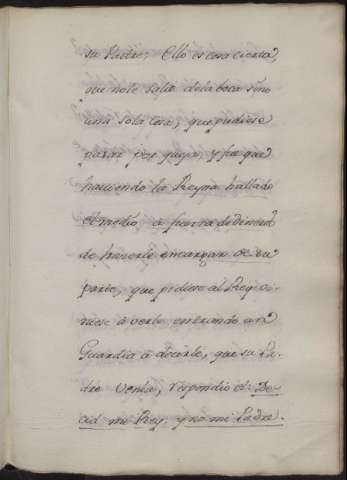 su Padre; Ello es cosa cierta,
que no le salio de la boca sino
una sola cosa, que pudiese
pasar por quexa, y fue que
haviendo la Reyna hallado
el medio à fuerza de
de hacerle encargar de su
parte, que pidiese al Rey vi-
niese à verle, entrando un
Guardia à decirle, que su Pa-
dre venia, respondio el: De-
cid mi Rey, y no mi Padre.